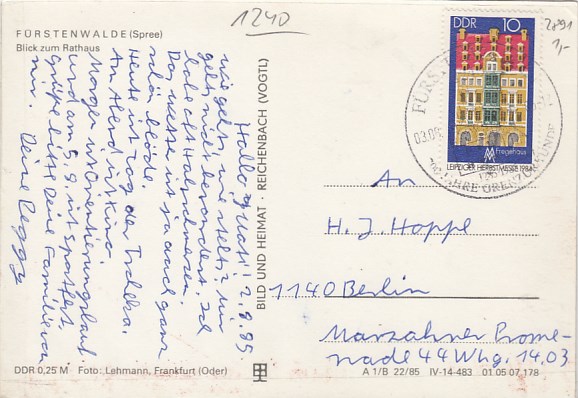 FÜRSTENWALDE (Spree)
Blick zum Rathaus
1240
2891
1,-
DDR 10
Fregehaus
MM
LEIPZIGER HERBSTMESSE 1984
FÜRST
03.09.
JAHRE GRENZ
Hallo, 2.9.85
wie geht's, wie steht's? Mir
geht's nicht besonders. Ich
habe echt Halsschmerzen.
Das Wetter ist ja auch ganz
schön blöde.
Heute ist Tag der
An Abend ist Kino.
Morgen ist Orientierungslauf
und am 5.9. ist Sportfest.
Grüße bitte Deine Familie von
mir. Deine Peggy
BILD UND HEIMAT · REICHENBACH (VOGTL)
An
H. J. Hoppe
1140 Berlin
Marzahner Prome-
nade 44 Whg. 14.03
DDR 0,25 M Foto: Lehmann, Frankfurt (Oder)
A 1/B 22/85 IV-14-483 01 05 07 178